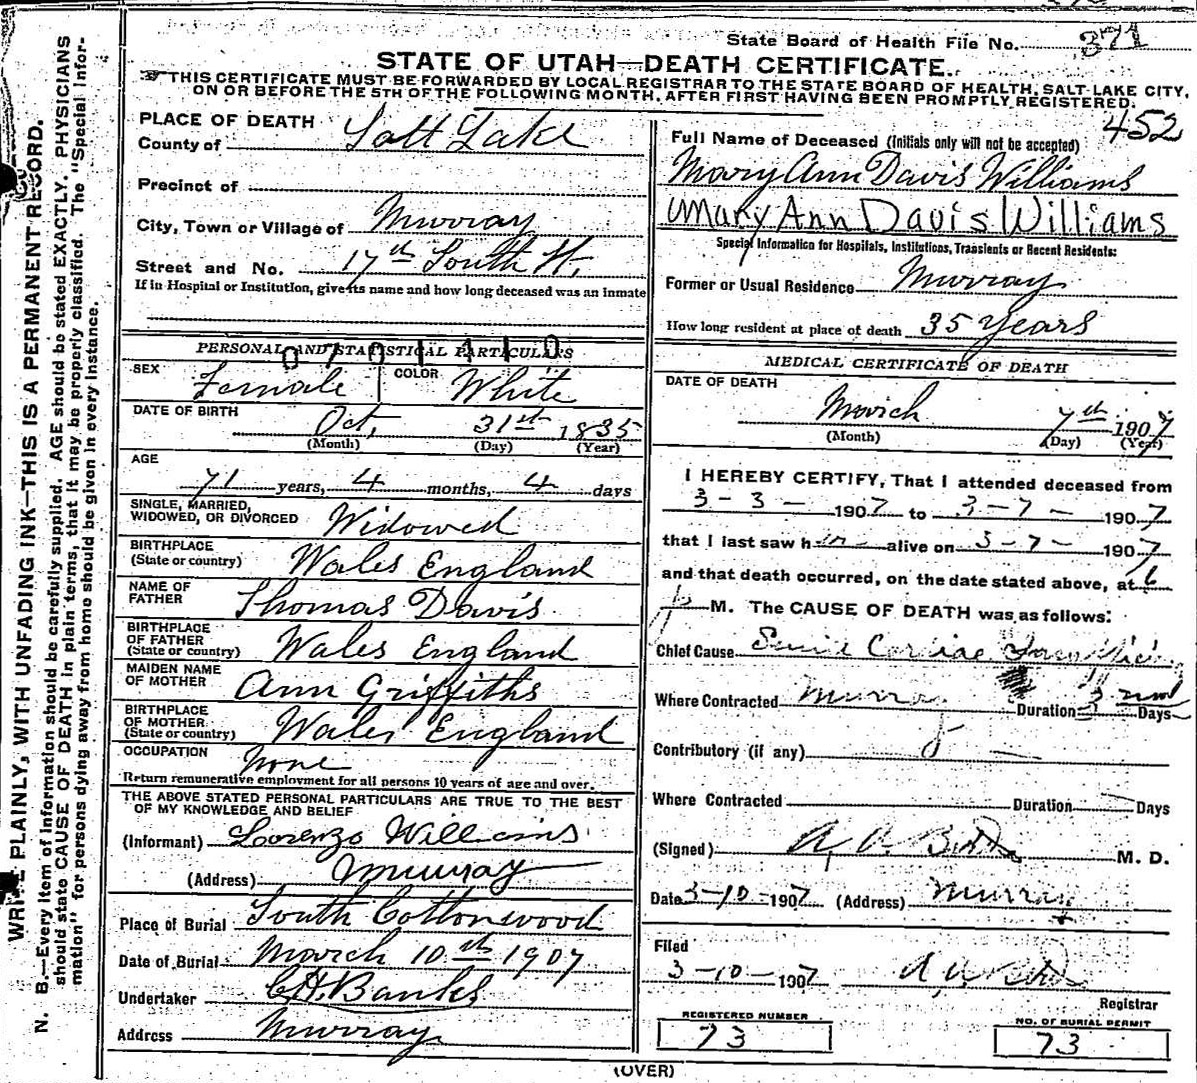 State Board of Health File No. 371
STATE OF UTAH—DEATH CERTIFICATE.
THIS CERTIFICATE MUST BE FORWARDED BY LOCAL REGISTRAR TO THE STATE BOARD OF HEALTH, SALT LAKE CITY,
ON OR BEFORE THE 5TH OF THE FOLLOWING MONTH, AFTER FIRST HAVING BEEN PROMPTLY REGISTERED.
452
WRITE PLAINLY, WITH UNFADING INK—THIS IS A PERMANENT RECORD.
N. B.—Every item of Information should be carefully supplied. AGE should be stated EXACTLY. PHYSICIANS
should state CAUSE OF DEATH in plain terms, that it may be properly classified. The "Special Infor-
mation" for persons dying away from home should be given in every instance.
PLACE OF DEATH
County of Salt Lake
Precinct of
City, Town or Village of Murray
Street and No. 17th South St.
If in Hospital or Institution, give its name and how long deceased was an inmate
PERSONAL AND STATISTICAL PARTICULARS
0701410
SEX Female COLOR White
DATE OF BIRTH Oct, 31st 1835
(Month) (Day) (Year)
AGE
71 years, 4 months, 4 days
SINGLE, MARRIED,
WIDOWED, OR DIVORCED Widowed
BIRTHPLACE
(State or country) Wales England
NAME OF
FATHER Thomas Davis
BIRTHPLACE
OF FATHER
(State or country) Wales England
MAIDEN NAME
OF MOTHER Ann Griffiths
BIRTHPLACE
OF MOTHER
(State or country) Wales England
OCCUPATION None
Return remunerative employment for all persons 10 years of age and over.
THE ABOVE STATED PERSONAL PARTICULARS ARE TRUE TO THE BEST
OF MY KNOWLEDGE AND BELIEF
(Informant) Lorenzo Williams
(Address) Murray
Place of Burial South Cottonwood
Date of Burial March 10th 1907
Undertaker C.H. Banks
Address Murray
Full Name of Deceased (Initials only will not be accepted)
Mary Ann Davis Williams
Mary Ann Davis Williams
Special Information for Hospitals, Institutions, Transients or Recent Residents:
Former or Usual Residence Murray
How long resident at place of death 35 Years
MEDICAL CERTIFICATE OF DEATH
DATE OF DEATH
March 7th 1907
(Month) (Day) (Year)
I HEREBY CERTIFY, That I attended deceased from
3-3- 1907 to 3-7- 1907
that I last saw h alive on 3-7- 1907
and that death occurred, on the date stated above, at 6
p M. The CAUSE OF DEATH was as follows:
Chief Cause
Where Contracted Murray Duration 3 Days
Contributory (if any)
Where Contracted Duration Days
(Signed) A. A. M. D.
Date 3-10-1907 (Address) Murray
Filed
3-10-1907
Registrar
REGISTERED NUMBER
73
NO. OF BURIAL PERMIT
73
(OVER)